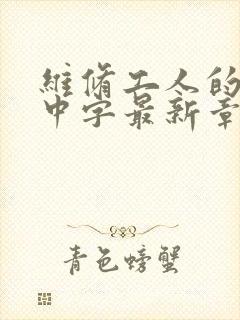 維脩工人的
中字最新章
青色螃蟹